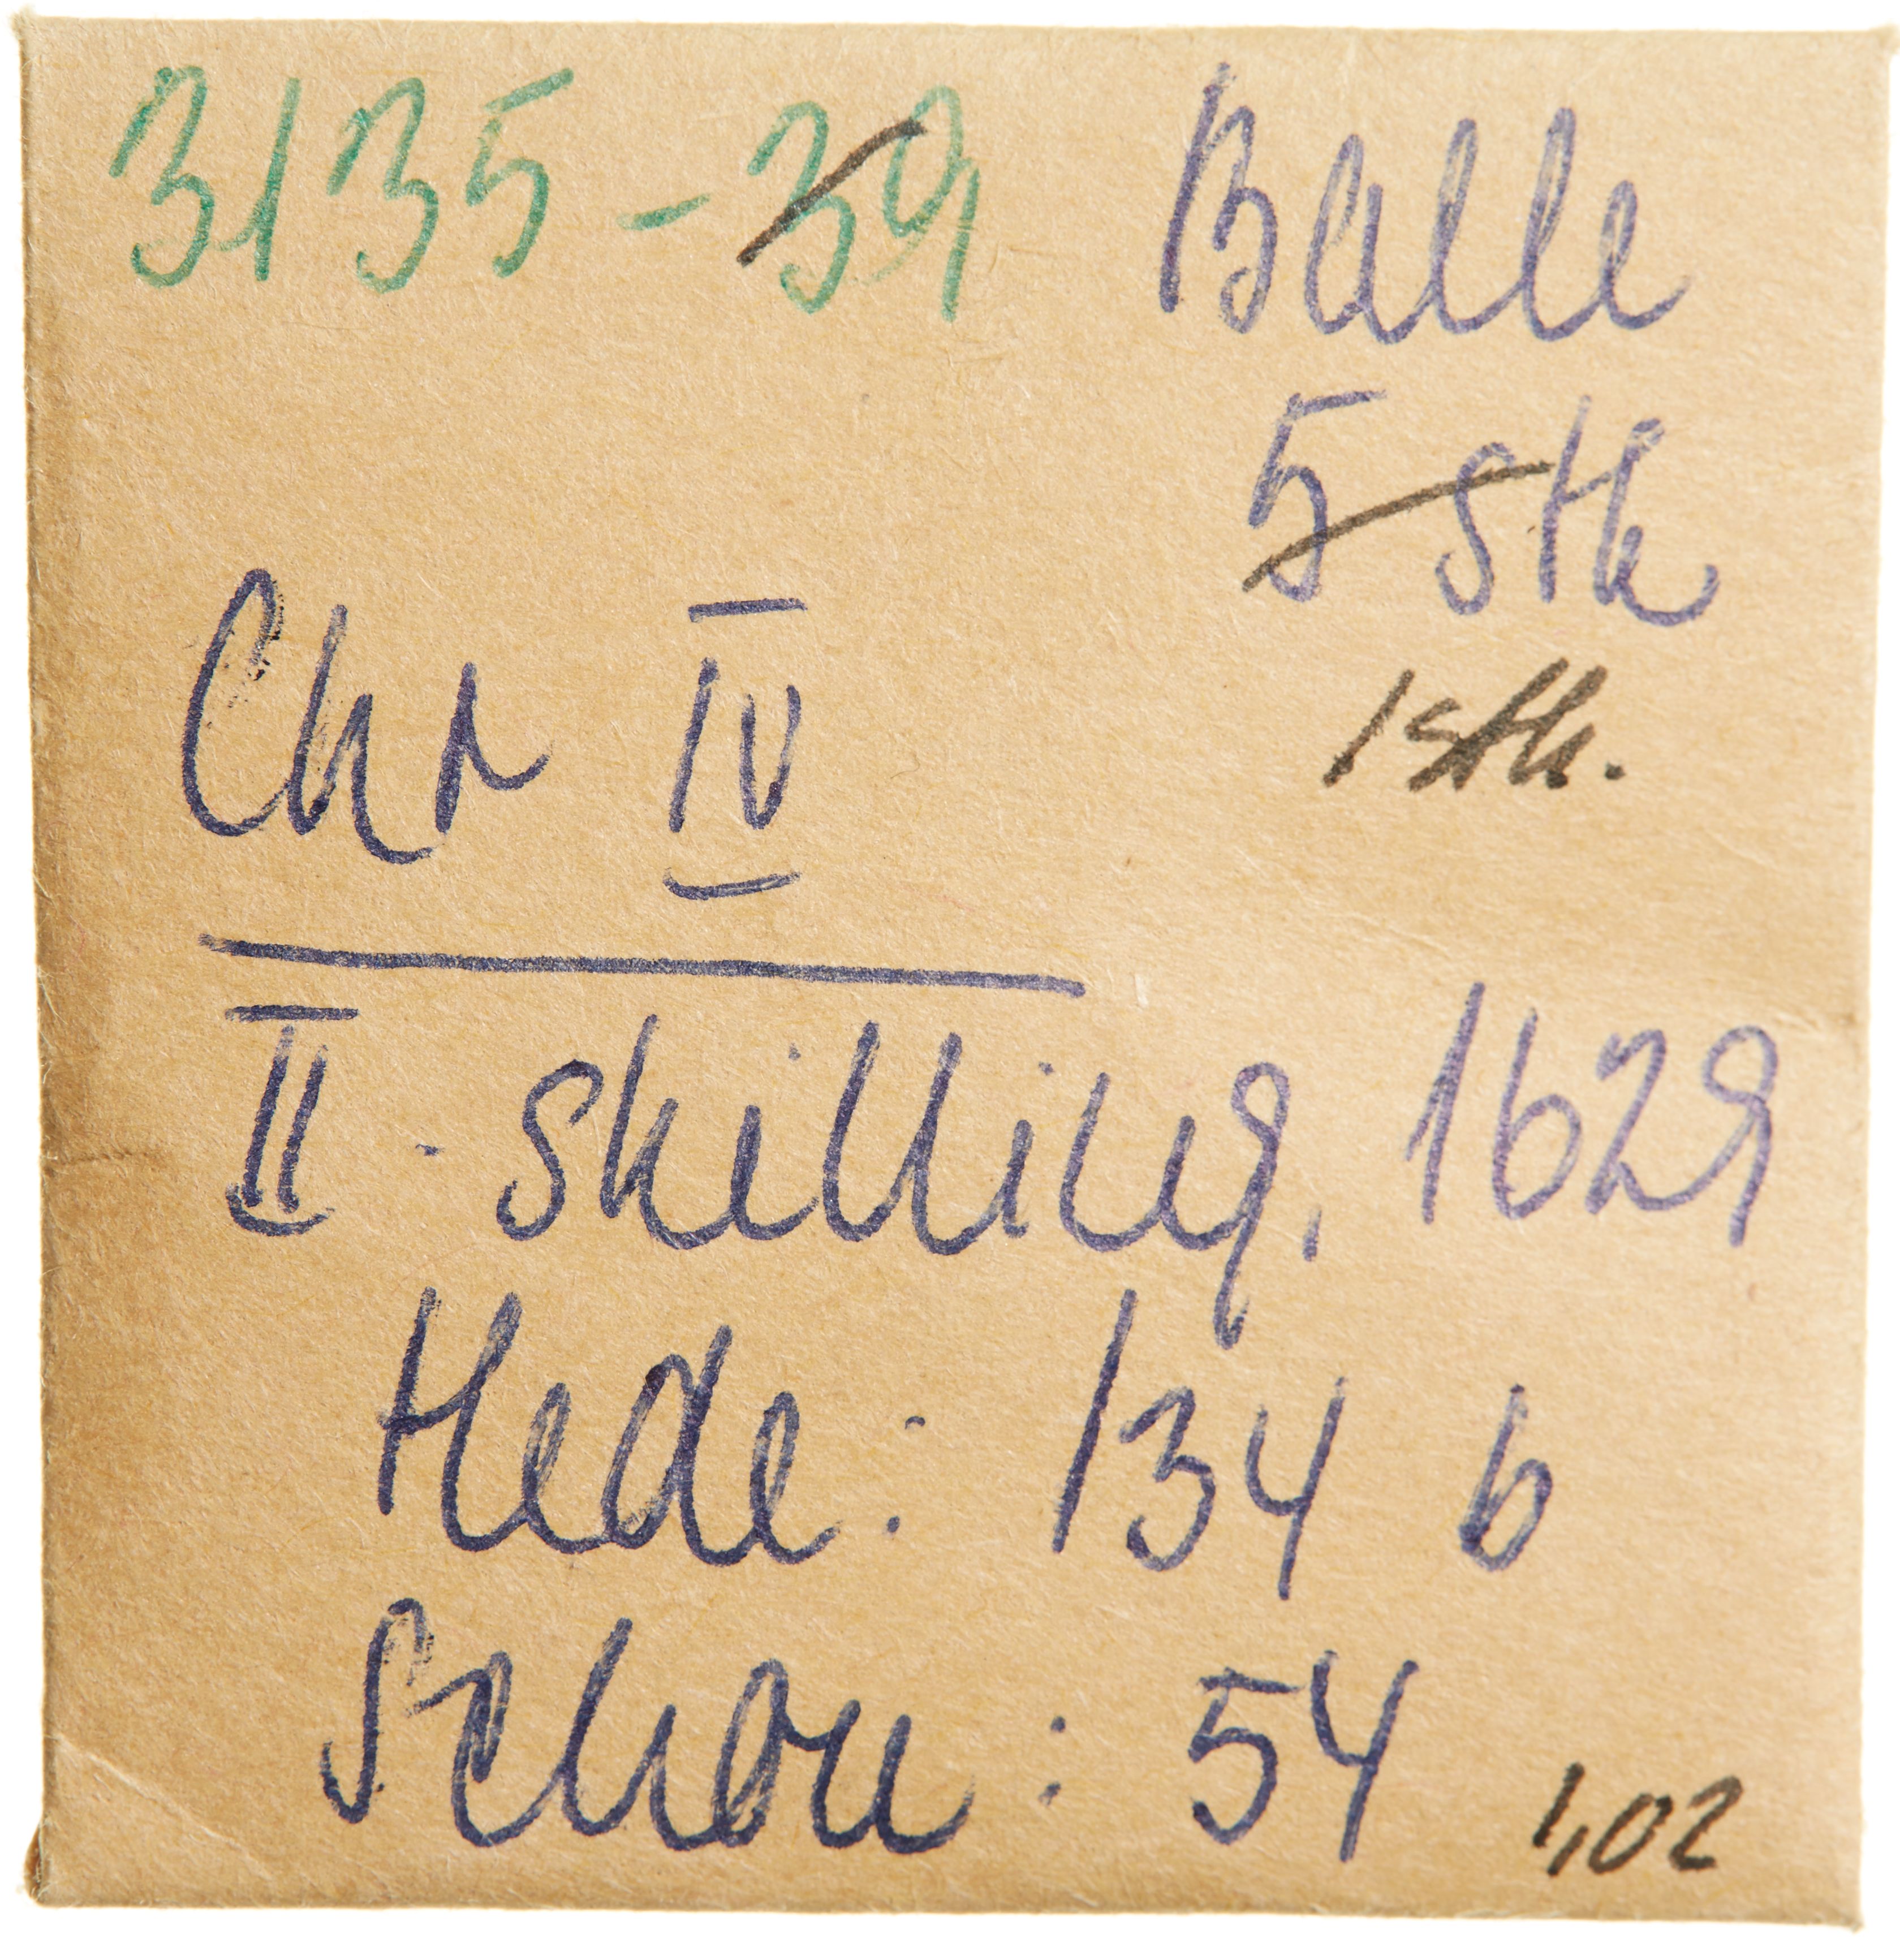 3135-39 Balle
5 stk
1 stk.
Chr IV
II skilling, 1629
Hede: 134 b
Schou: 54
1,02